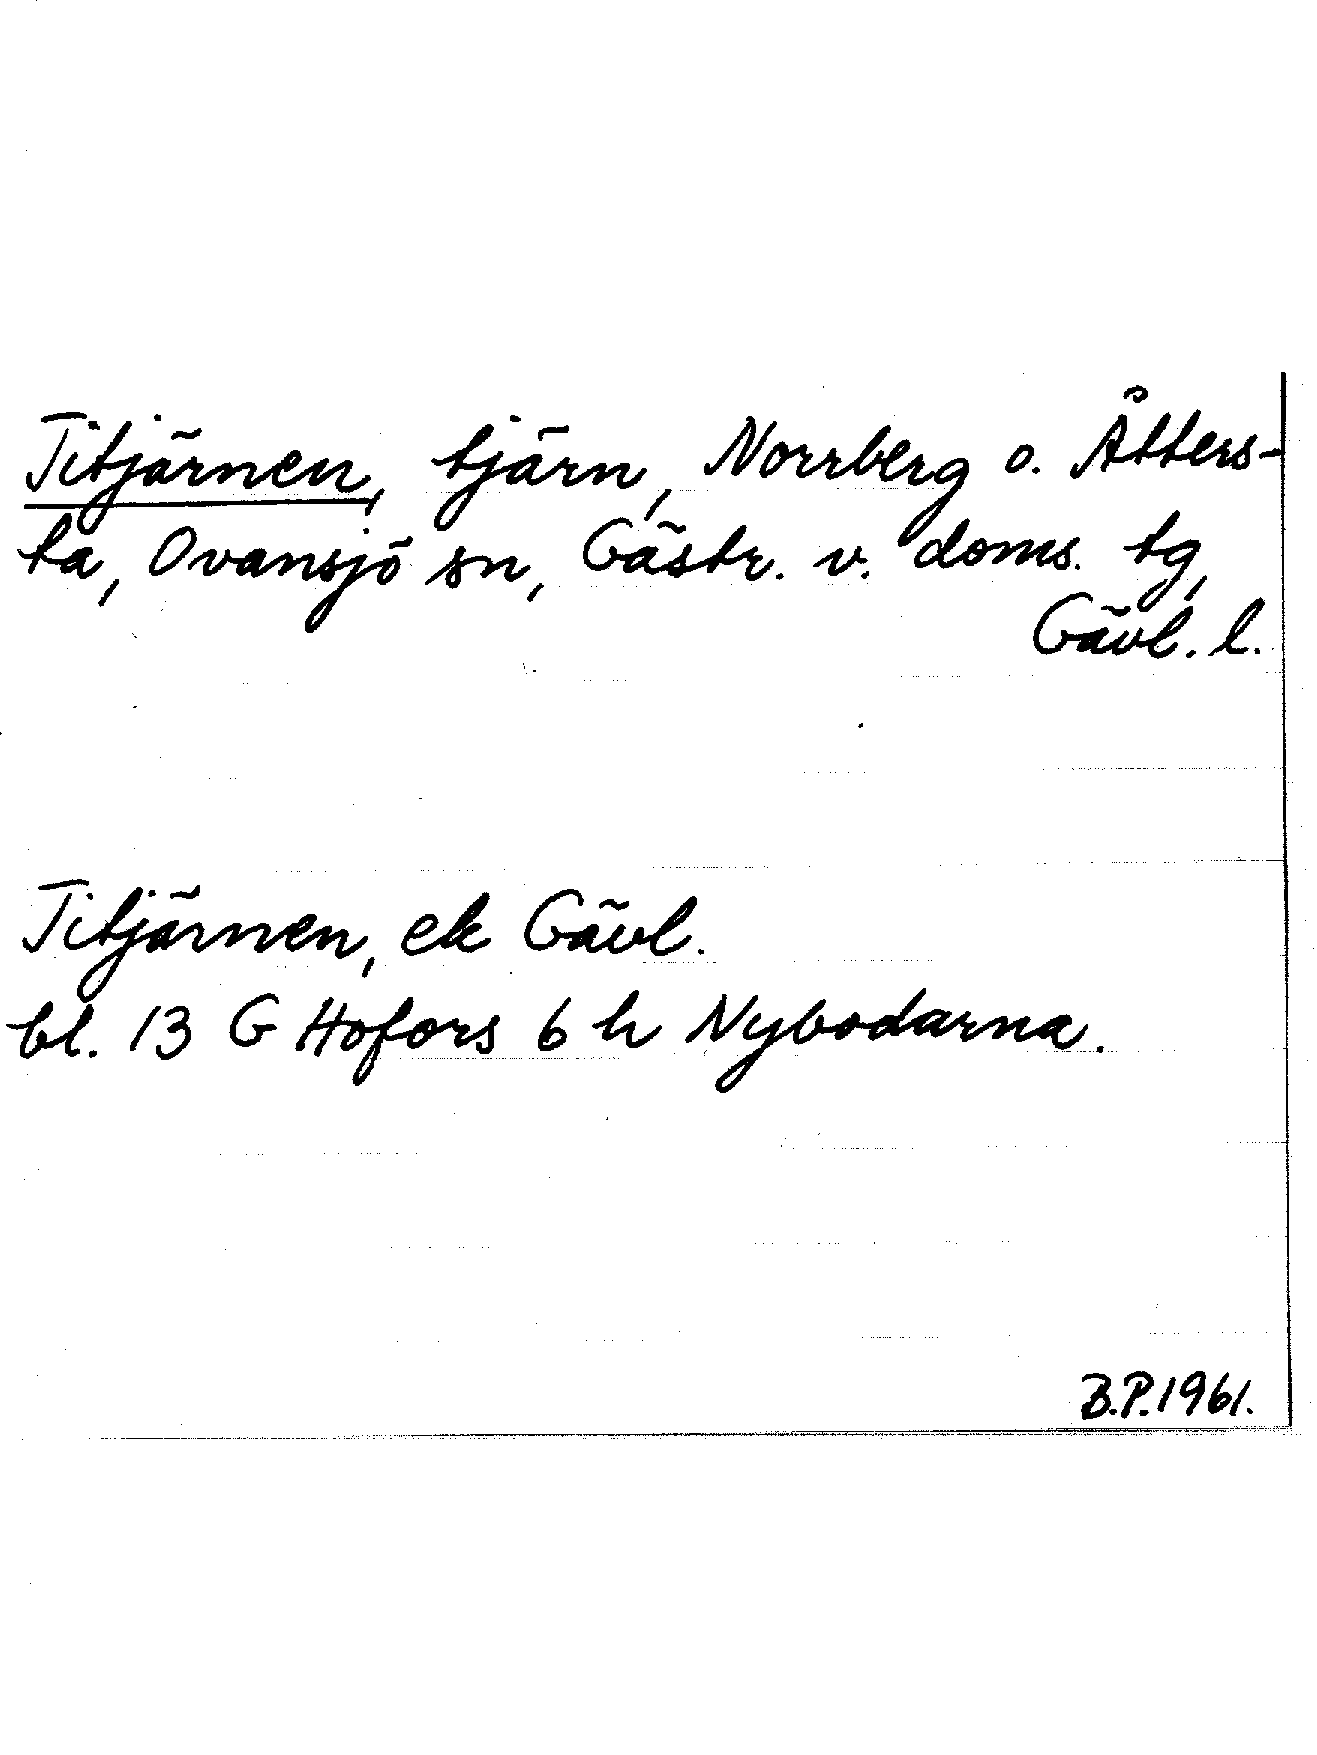 Titjärnen, tjärn, Norrberg o. Åtters-
ta, Ovansjö sn, Gästr. v. doms. tg,
Gävl. l.
Titjärnen, ek Gävl.
bl. 13 G Hofors 6 h Nybodarna.
B.P. 1961.